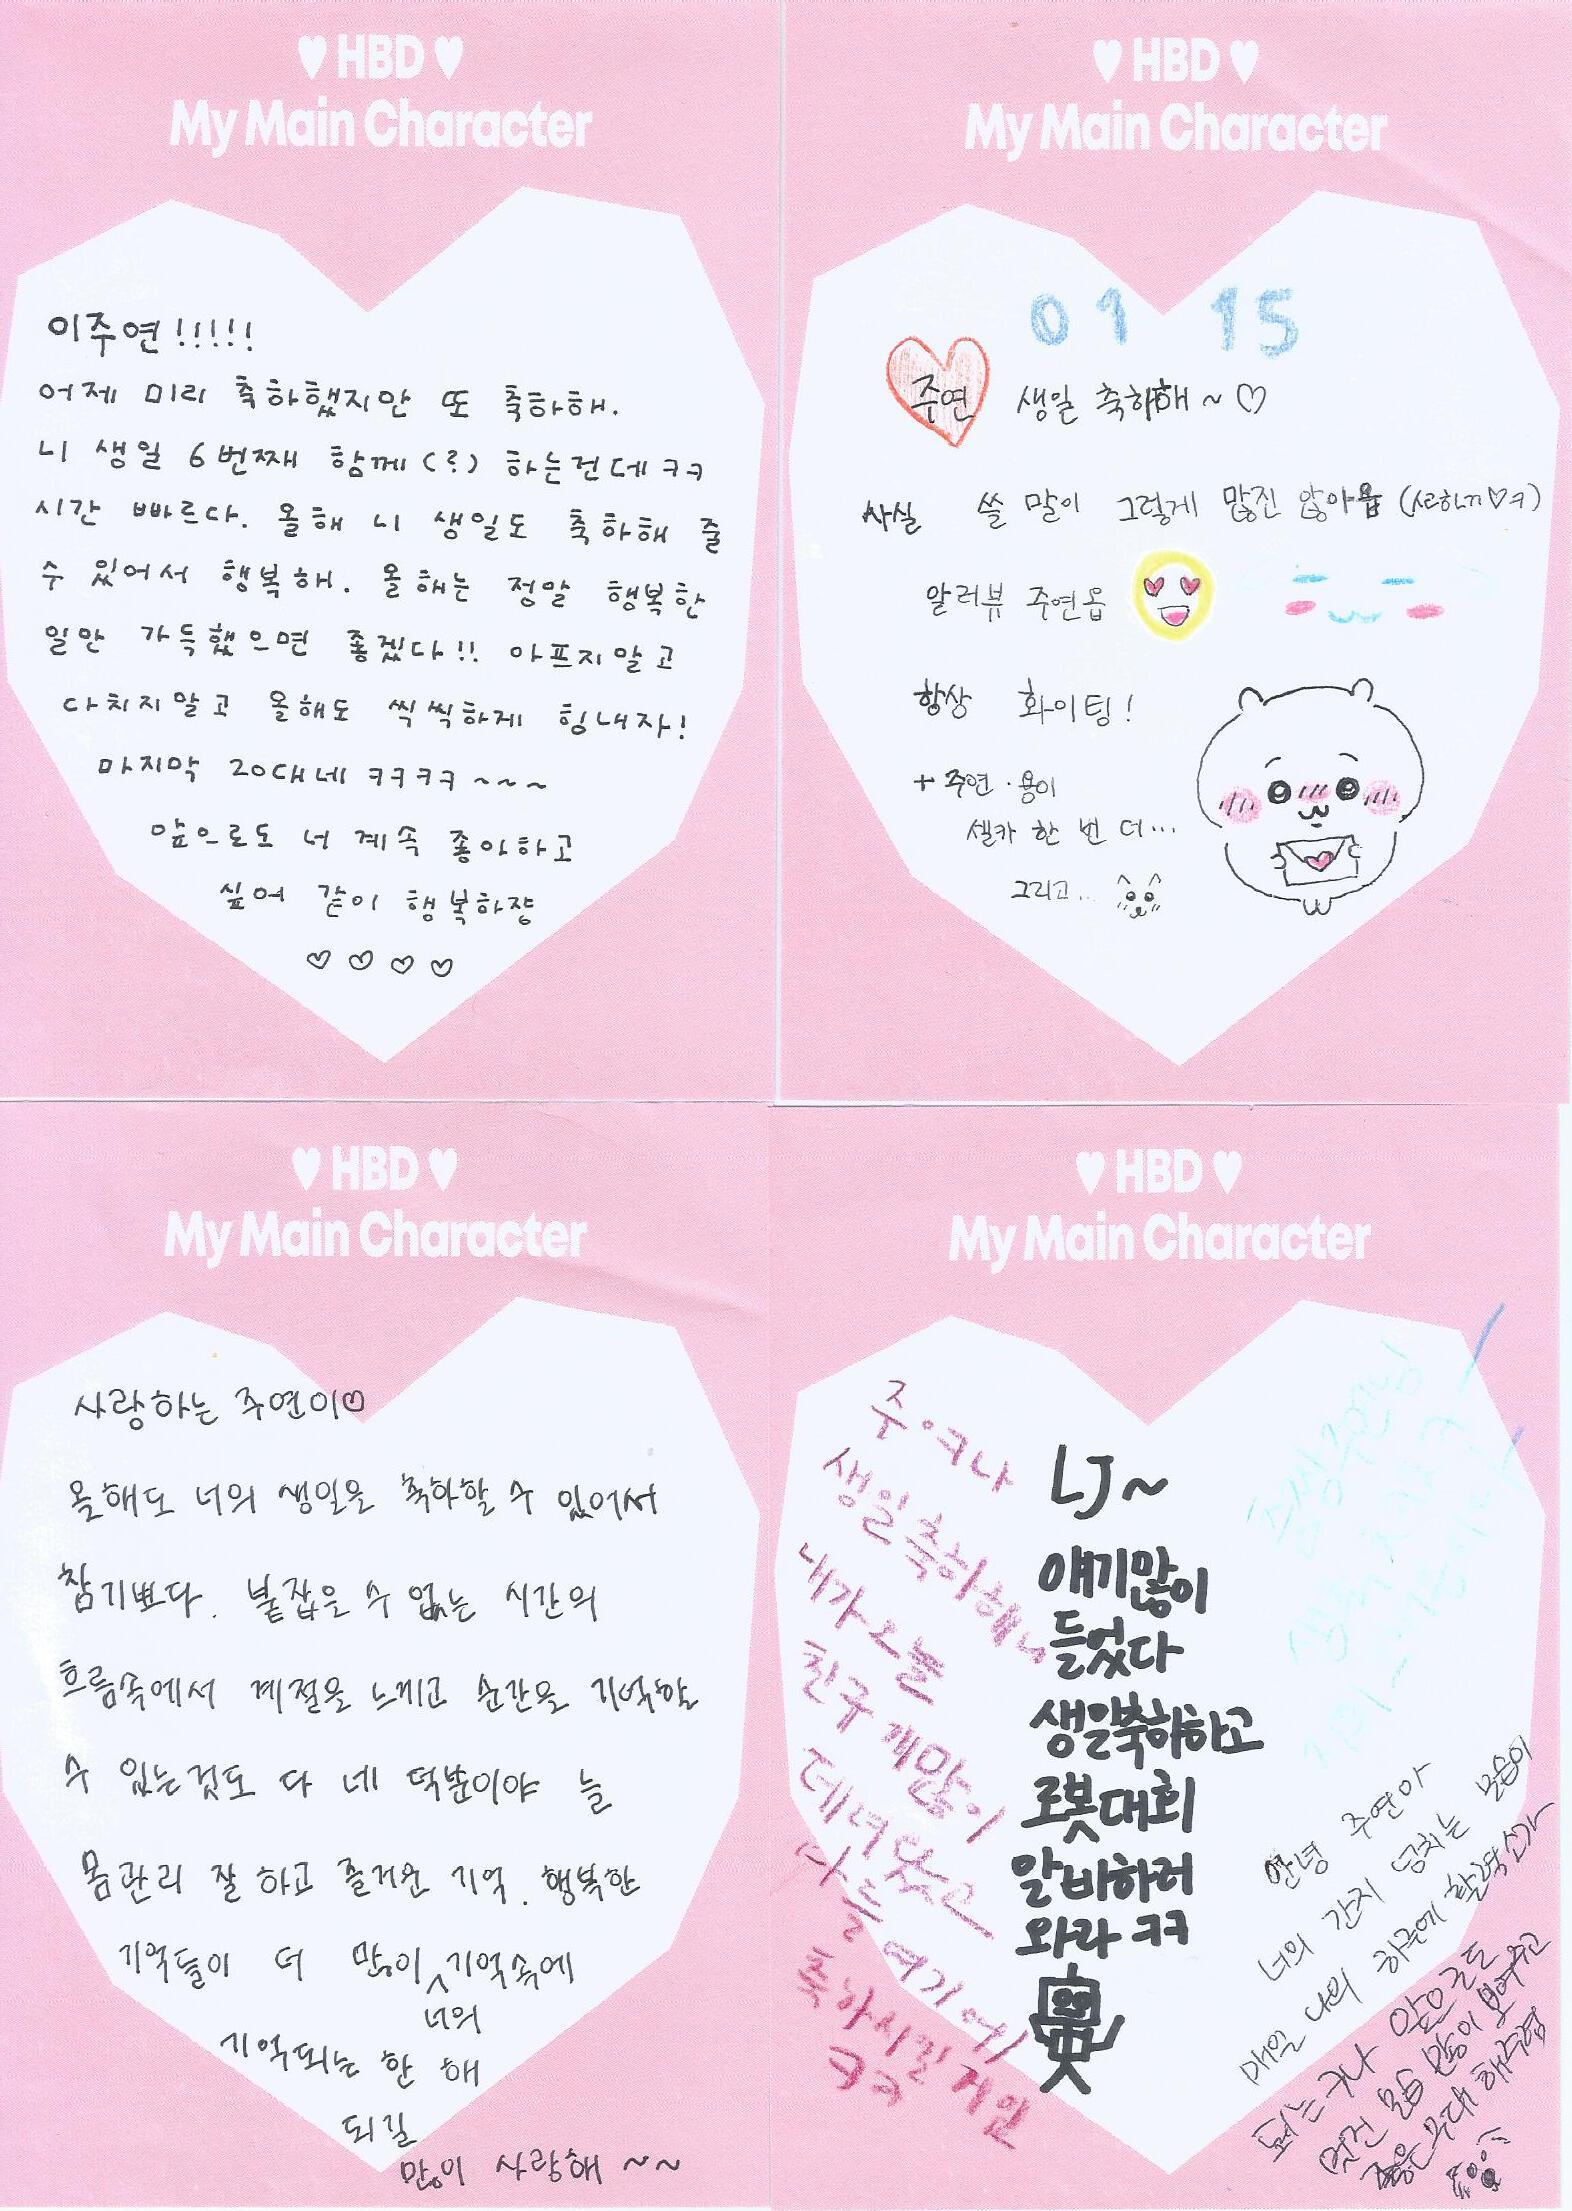 ♥ HBD ♥
My Main Character
이주연!!!!!
어제 미리 축하했지만 또 축하해.
니 생일 6번째 함께(?) 하는건데 ㅋㅋ
시간 빠르다. 올해 니 생일도 축하해 줄
수 있어서 행복해. 올해는 정말 행복한
일만 가득했으면 좋겠다!! 아프지말고
다치지말고 올해도 씩씩하게 힘내자!
마지막 20대네 ㅋㅋㅋㅋ~~~
앞으로도 너 계속 좋아하고
싶어 같이 행복하쟝
♡ ♡ ♡ ♡
♥ HBD ♥
My Main Character
01 15
주연 생일 축하해~♡
사실 쓸 말이 그렇게 많진 않아욥
알러뷰 주연욥
항상 화이팅!
+ 주연·용이
셀카 한 번 더...
그리고...
♥ HBD ♥
My Main Character
사랑하는 주연이♡
올해도 너의 생일을 축하할 수 있어서
참 기쁘다. 붙잡을 수 없는 시간의
흐름속에서 계절을 느끼고 순간을 기억할
수 있는것도 다 네 덕분이야 늘
몸관리 잘 하고 즐거운 기억, 행복한
기억들이 더 많이 너의 기억속에
기억되는 한 해
되길
많이 사랑해 ~~
♥ HBD ♥
My Main Character
생일축하해
내가 오늘
친구 개많이
데려왔고
다들 여기에
축하시킬거임
ㅋㅋ
LJ~
얘기많이
들었다
생일축하하고
로봇대회
알바하러
와라 ㅋㅋ
안녕 주연아
너의 간지 넘치는 모습이
매일 나의 하루에 활력소가
되는구나 앞으로도
멋진 모습 많이 보여주고
좋은 무대 해주렴